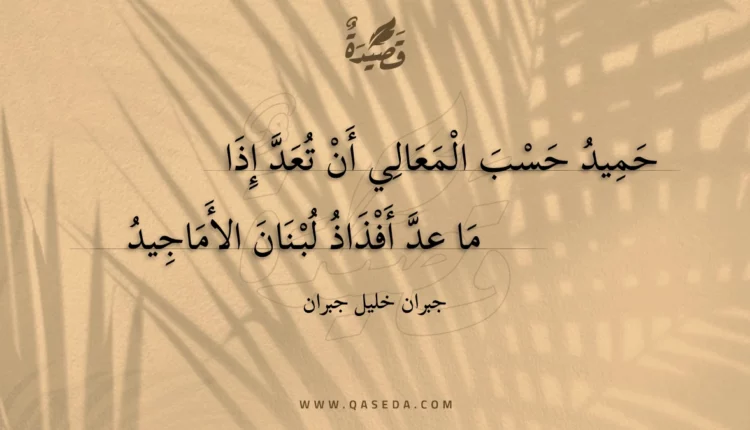 قَصِيْدَةٌ
حَمِيدُ حَسْبَ الْمَعَالِي أَنْ تُعَدَّ إِذَا
مَا عدَّ أَفْذَاذُ لُبْنَانَ الأَمَاجِيدُ
جبران خليل جبران
WWW.QASEDA.COM